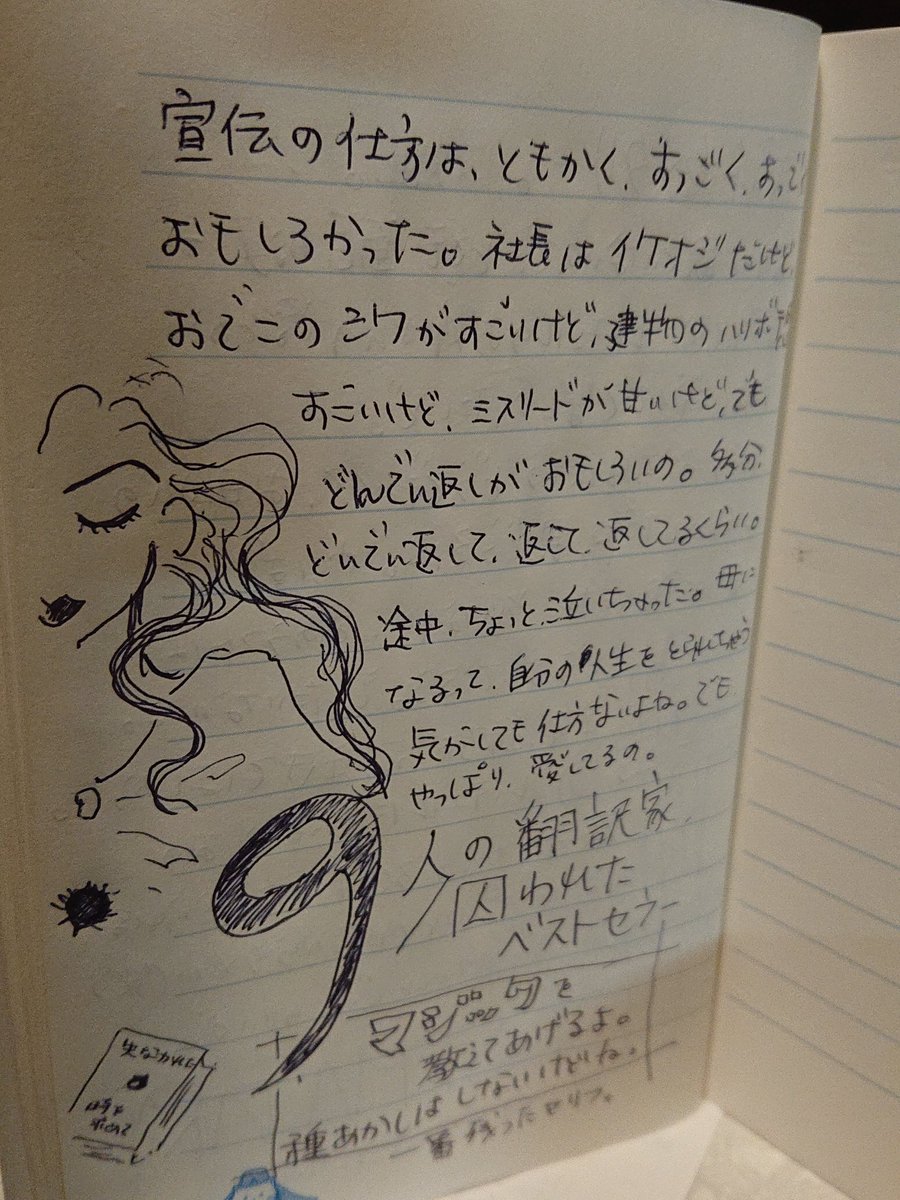 宣伝の仕方は、ともかく、すっごく、すっごく
おもしろかった。社長はイケオジだけど
おでこのシワがすごいけど、建物のハリボテが
すごいけど、ミスリードが甘いけど、でも
どんでん返しがおもしろいの。多分、
どんでん返して、返して、返してるくらい。
途中、ちょっと、泣いちゃった。母に
なるって、自分の人生をとられちゃう
気がしても仕方ないよね。でも
やっぱり、愛してるの。
9人の翻訳家
囚われた
ベストセラー
マジックを
教えてあげるよ。
種あかしはしないけどね。
一番 残ったセリフ。
失なわれた
時を
求めて